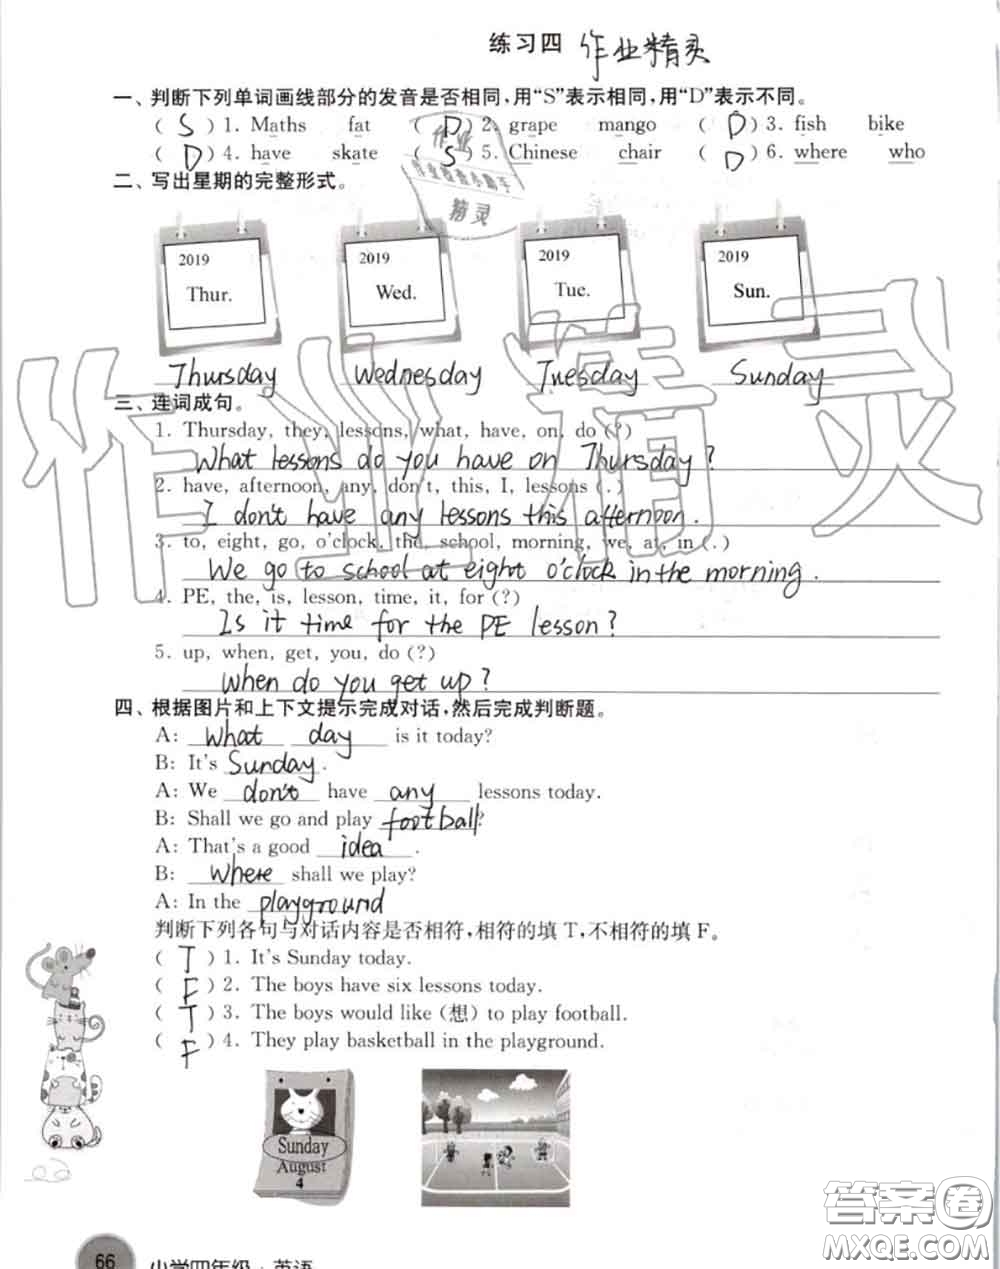 练习四 作业精灵
一、判断下列单词画线部分的发音是否相同,用“S”表示相同,用“D”表示不同。
( S ) 1. Maths fat ( D ) 2. grape mango ( D ) 3. fish bike
( D ) 4. have skate ( S ) 5. Chinese chair ( D ) 6. where who
作业
精灵
二、写出星期的完整形式。
2019 2019 2019 2019
Thur. Wed. Tue. Sun.
Thursday Wednesday Tuesday Sunday
作业精灵
三、连词成句。
1. Thursday, they, lessons, what, have, on, do (?)
What lessons do you have on Thursday?
2. have, afternoon, any, don't, this, I, lessons (.)
I don't have any lessons this afternoon.
3. to, eight, go, o'clock, the, school, morning, we, at, in (.)
We go to school at eight o'clock in the morning.
4. PE, the, is, lesson, time, it, for (?)
Is it time for the PE lesson?
5. up, when, get, you, do (?)
When do you get up?
四、根据图片和上下文提示完成对话,然后完成判断题。
A: What day is it today?
B: It's Sunday.
A: We don't have any lessons today.
B: Shall we go and play football?
A: That's a good idea.
B: Where shall we play?
A: In the playground
判断下列各句与对话内容是否相符,相符的填 T,不相符的填 F。
( T ) 1. It's Sunday today.
( F ) 2. The boys have six lessons today.
( T ) 3. The boys would like (想) to play football.
( F ) 4. They play basketball in the playground.
Sunday
August
4
答案圈
MXQE.COM
66 小学四年级·英语